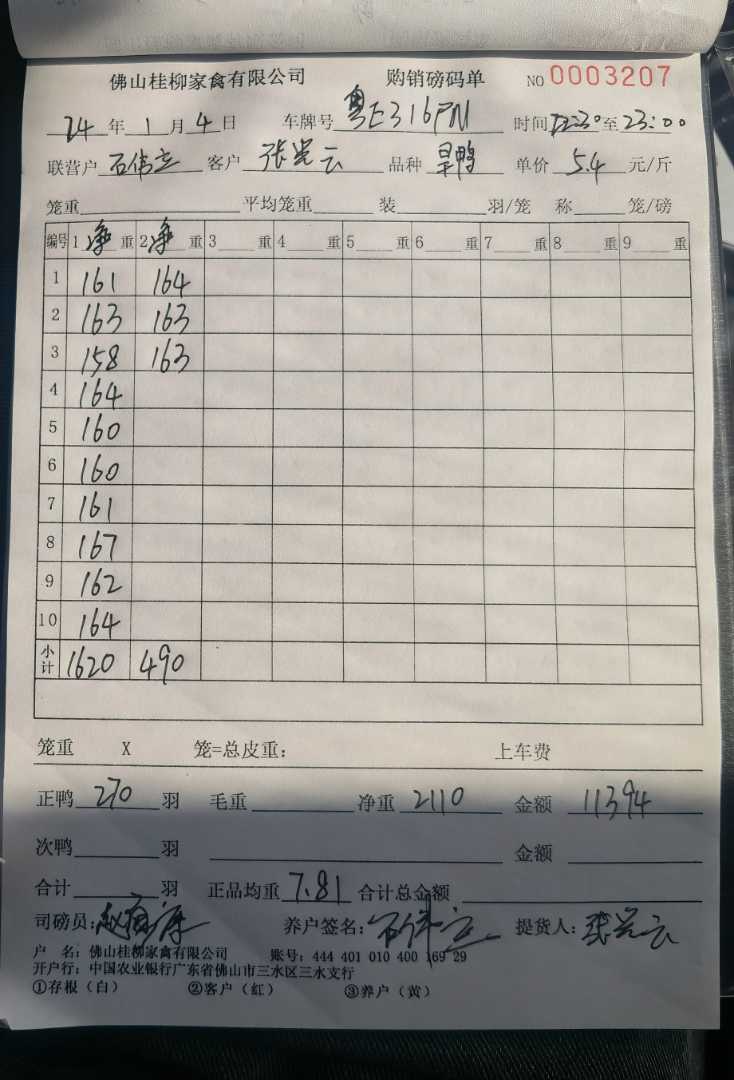 佛山桂柳家禽有限公司 购销磅码单 NO 0003207
24年1月4日 车牌号 粤E316PN 时间 22:30至23:00
联营户 石伟立 客户 张兴云 品种 旱鸭 单价 5.4 元/斤
笼重 平均笼重 装 羽/笼 称 笼/磅
编号 1净重 2净重 3 重 4 重 5 重 6 重 7 重 8 重 9 重
1 161 164
2 163 163
3 158 163
4 164
5 160
6 160
7 161
8 167
9 162
10 164
小计 1620 490
笼重 X 笼=总皮重: 上车费
正鸭 270 羽 毛重 净重 2110 金额 11394
次鸭 羽 金额
合计 羽 正品均重 7.81 合计总金额
司磅员: 养户签名: 石伟立 提货人: 张兴云
户 名: 佛山桂柳家禽有限公司 账号: 444 401 010 400 169 29
开户行: 中国农业银行广东省佛山市三水区三水支行
①存根(白) ②客户(红) ③养户(黄)